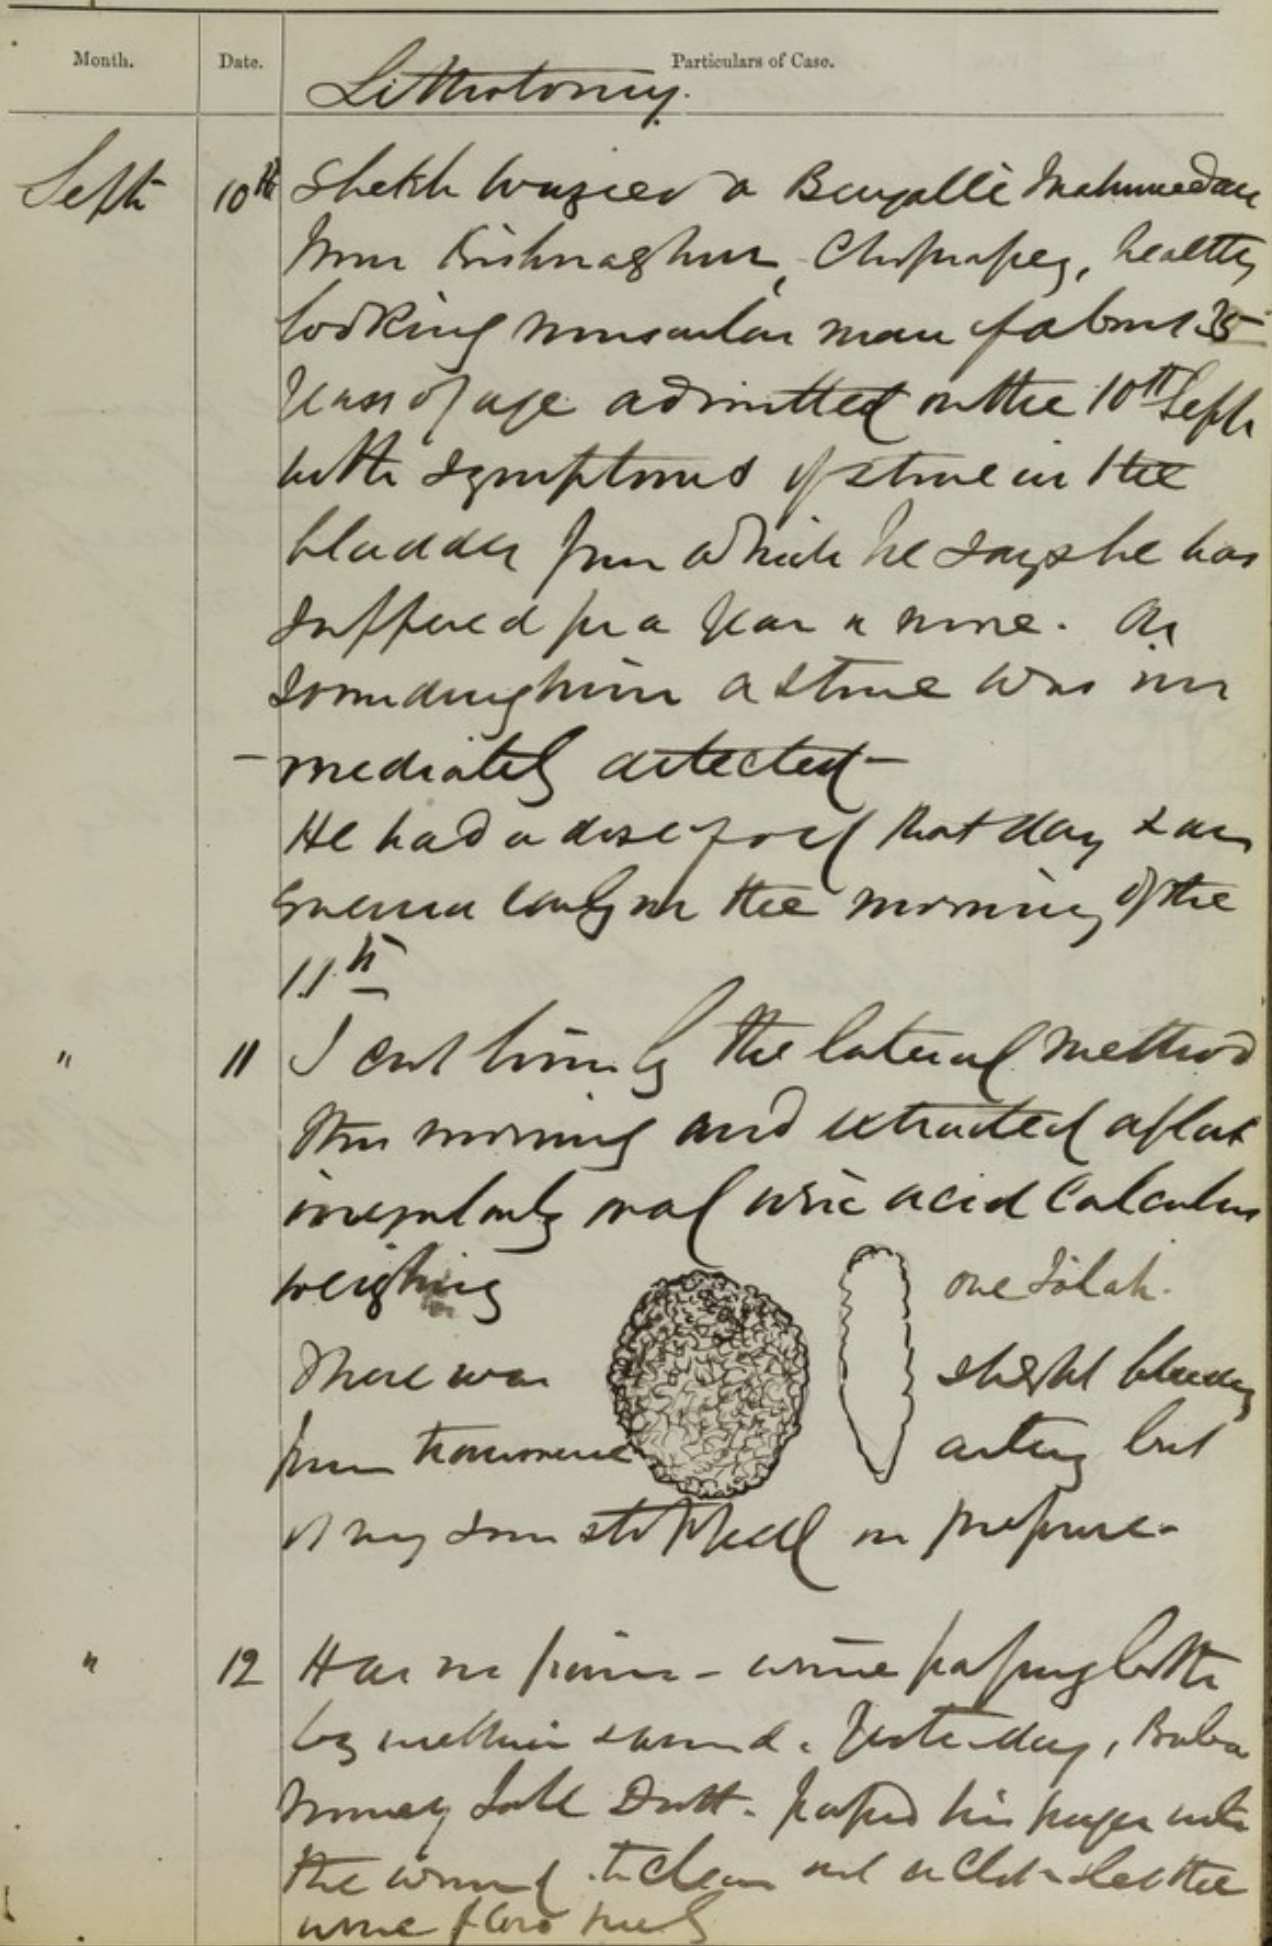 Month. Date. Particulars of Case.
Lithotomy.
Septr 10th Shekh Wuzeer a Bengalli Mahumedan
from Kishnaghur, healthy
looking muscular man of about 35
years of age admitted on the 10th Septr
with symptoms of stone in the
bladder from which he says he has
suffered for a year or more. On
sounding him a stone was im
- mediately detected -
He had a dose of oil that day & an
enema early on the morning of the
11th
" 11 I cut him by the lateral method
this morning and extracted a flat
irregularly oval uric acid calculus
weighing one Tolah.
There was slight bleeding
from transverse artery but
it very soon stopped on pressure -
" 12 Has no pain - urine passing both
by urethra & wound. Yesterday, Baboo
Lall Dutt. passed his finger into
the wound to clean out a clot & let the
urine flow freely